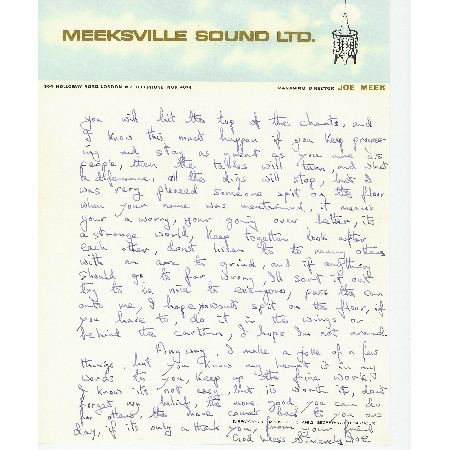 MEEKSVILLE SOUND LTD.
304 HOLLOWAY ROAD LONDON N.7 TELEPHONE NOR 4074
MANAGING DIRECTOR JOE MEEK
you will hit the top of the charts, and
I know this must happen if you keep progress
ing and stay as great as you are as
people, then the tables will turn, and what
a difference, all the digs will stop, but I
was very pleased someone spit on the floor
when your name was mentioned, it means
your a worry, your going over better, its
a strange world. Keep together look after
each other, dont listen to to many others
with an axe to grind, and if anything
should go to far wrong I'll sort it out
try to be nice to everyone, pass the can
onto me, I hope you wont spit on the floor, if
you have to, do it in the wings or
behind the curtain, I hope Im not around.
Anyway, I make a joke of a few
things, but you know my heart is in my
words to you, keep up the fine work.
I know its not easy, but its worth it, dont
forget my belief, the more good you can do
for others, the more comes back to you one
day, if its only a thank you, from your friend
God bless Sincerely Joe